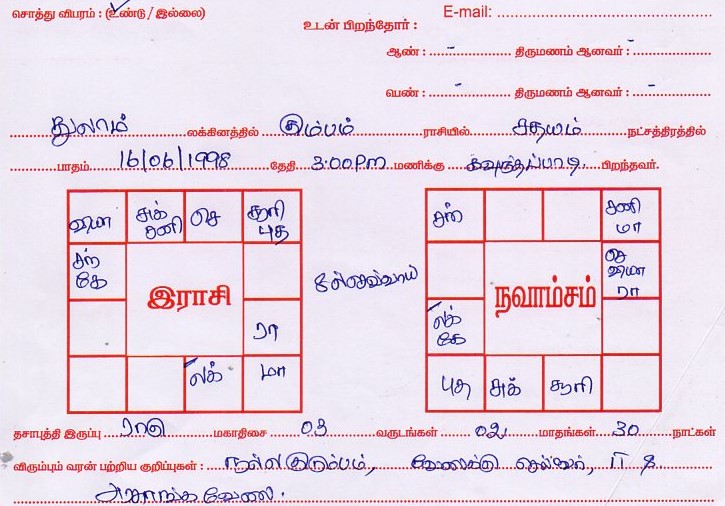 சொத்து விபரம் : (உண்டு / இல்லை) E-mail:
உடன் பிறந்தோர் :
ஆண் : - திருமணம் ஆனவர் : -
பெண் : - திருமணம் ஆனவர் : -
துலாம் லக்கினத்தில் கும்பம் ராசியில் சதயம் நட்சத்திரத்தில்
பாதம் 16/06/1998 தேதி 3:00Pm மணிக்கு கவுந்தப்பாடி பிறந்தவர்.
வியா சுக் சனி செ சூரி புத சந் சனி மா
சந் கே செவ்வாய் செ வியா ரா
இராசி நவாம்சம்
ரா லக் கே
லக் மா புத சுக் சூரி
தசாபுத்தி இருப்பு ராகு மகாதிசை 03 வருடங்கள் 02 மாதங்கள் 30 நாட்கள்
விரும்பும் வரன் பற்றிய குறிப்புகள் : நல்ல குடும்பம்,
அரசாங்க வேலை.